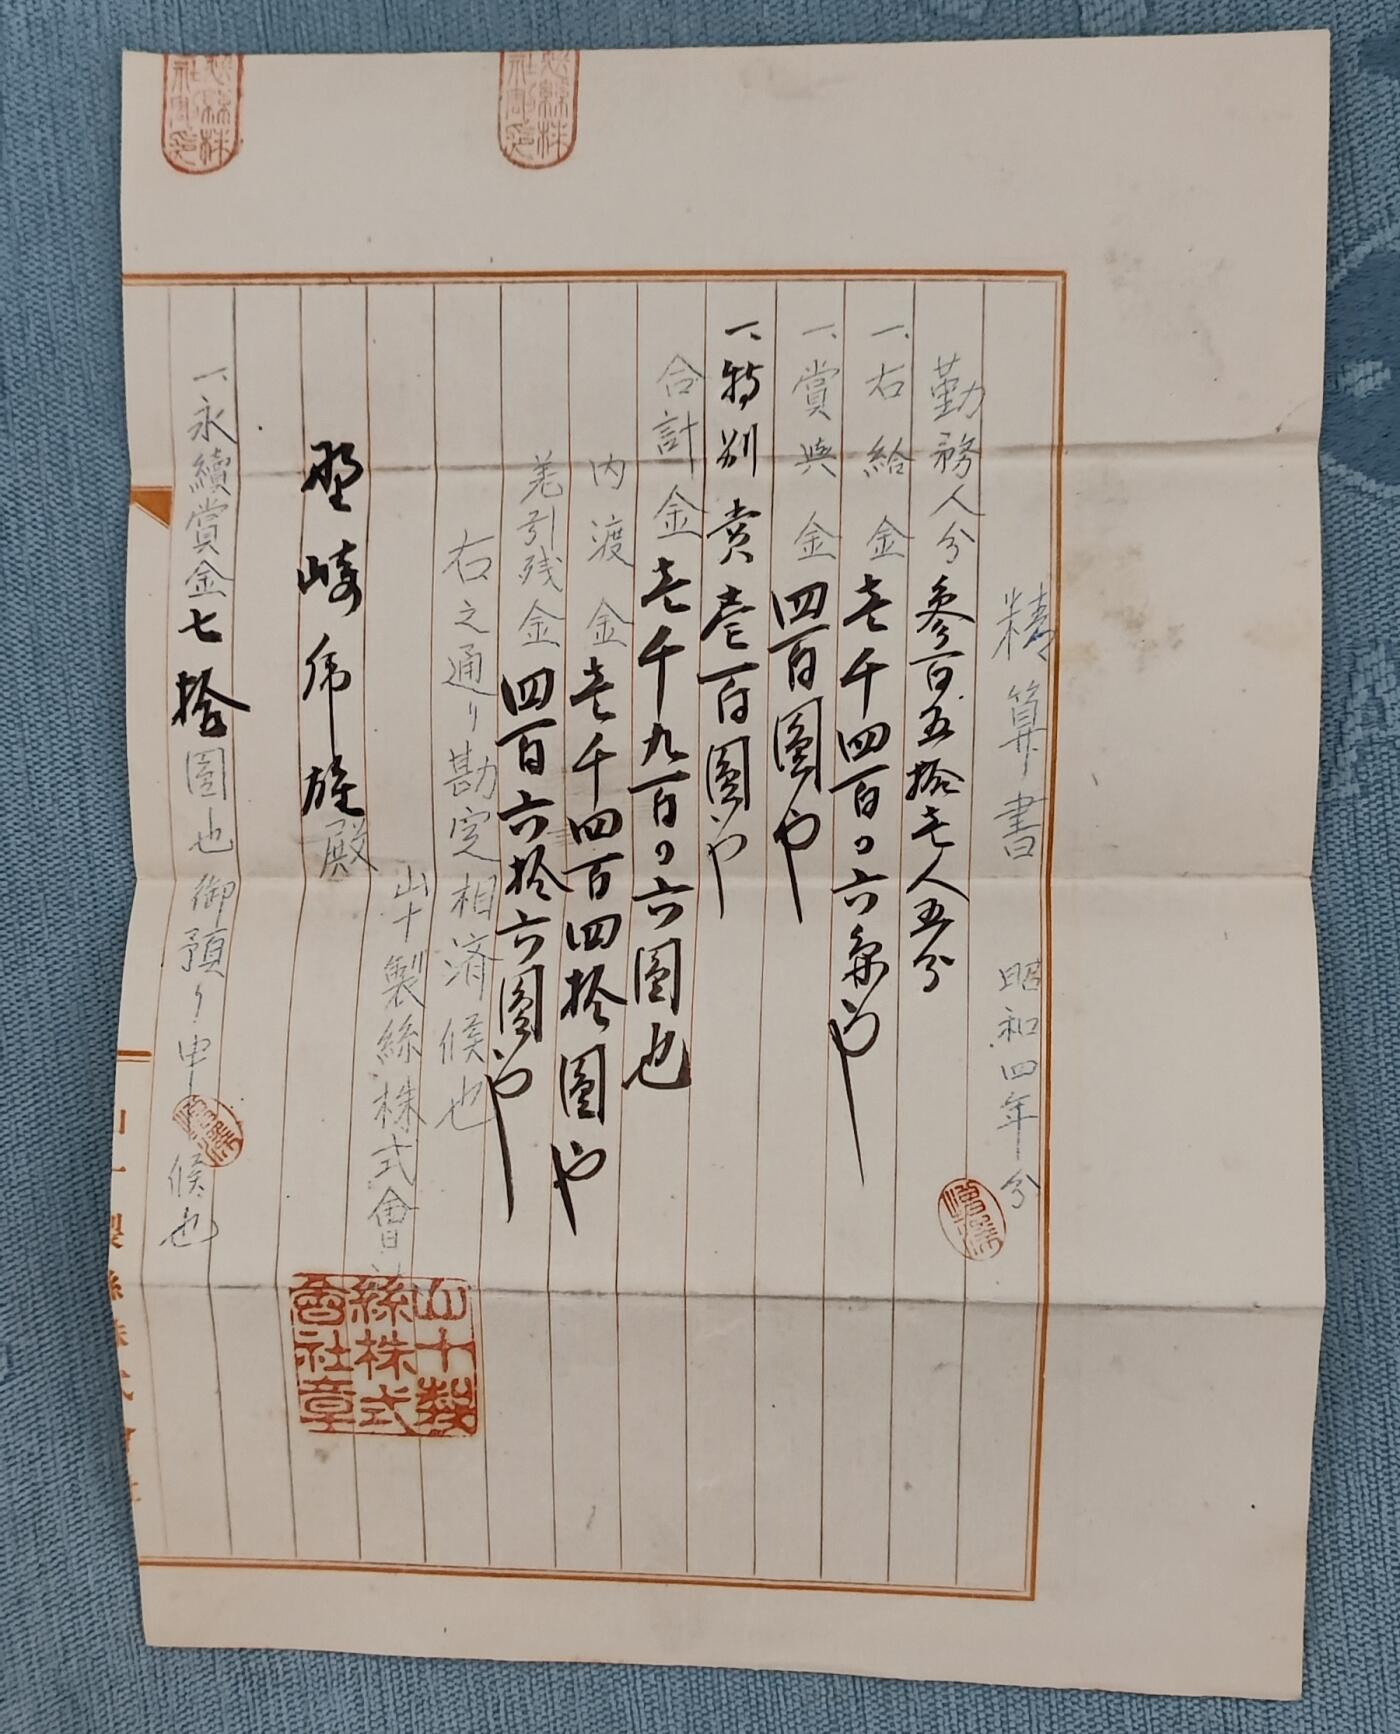 精算書 昭和四年分
勤務人分参百五拾壱人五分
一、右給金壱千四百〇六円也
一、賞與金四百圓也
一、特別賞壱百圓也
合計金壱千九百〇六圓也
内渡金壱千四百四拾圓也
差引残金四百六拾六圓也
右之通り勘定相済候也
山十製絲株式會
野崎 殿
一、永續賞金七拾圓也御預り申候也
山十製絲株式會社章